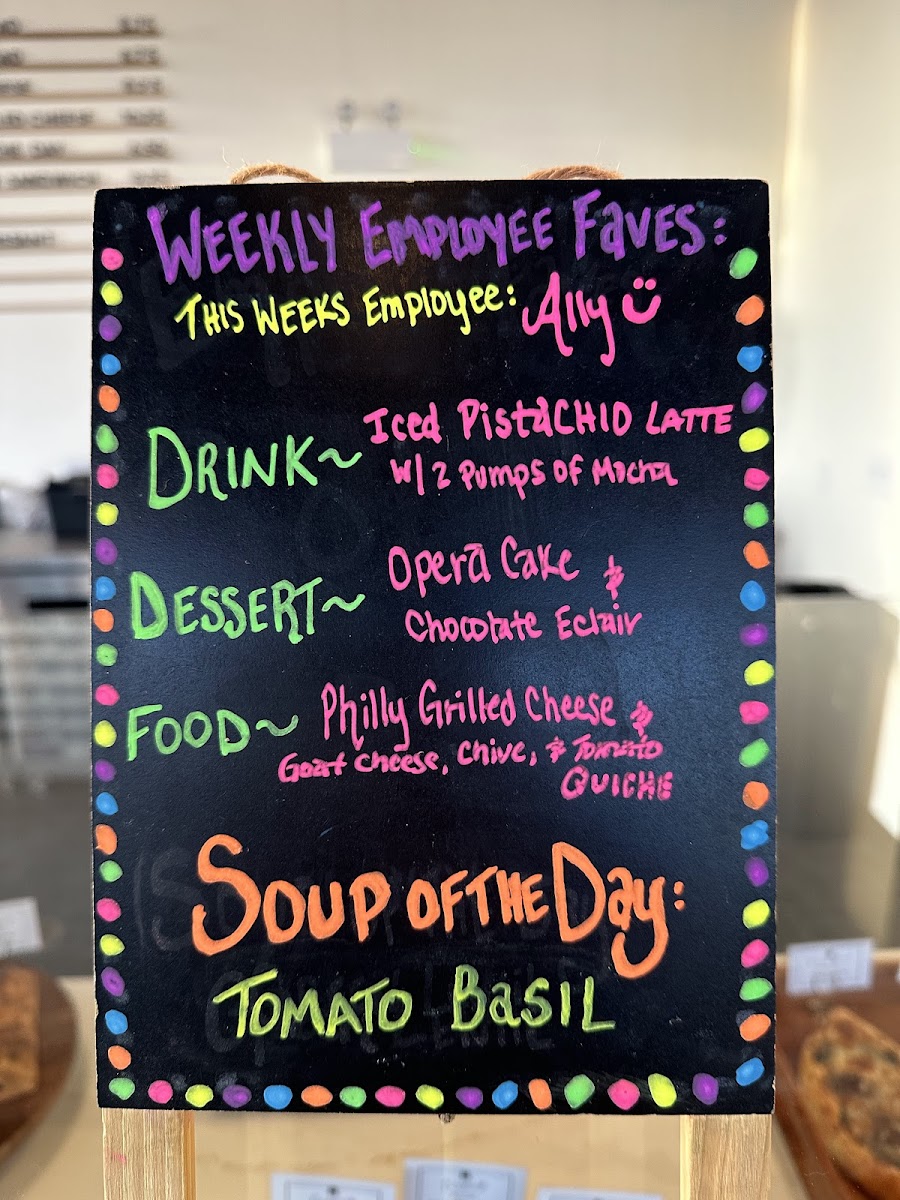 WEEKLY EMPLOYEE FAVES:
THIS WEEKS Employee: Ally
DRINK~ Iced PistaCHIO LATTE
W/ 2 Pumps of Mocha
DESSERT~ Opera Cake &
Chocolate Eclair
FOOD~ Philly Grilled Cheese &
Goat Cheese, Chive, & Tomato
QUICHE
SOUP OF THE Day:
TOMATO BaSIL